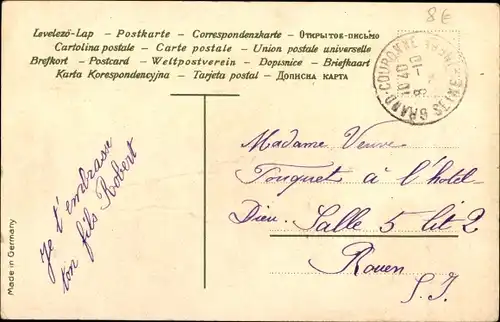 8€
Levelező-Lap – Postkarte – Correspondenzkarte – Открытое-письмо
Cartolina postale – Carte postale – Union postale universelle
Brefkort – Postcard – Weltpostverein – Dopisnice – Briefkaart
Karta Korespondencyjna – Tarjeta postal – Дописна карта
GRAND-COURONNE
10 40
8 - 10
SEINE INFRE
Je t'embrasse
ton fils Robert
Made in Germany
Madame Veuve
Touquet à l'hotel-
Dieu. Salle 5 lit 2
Rouen
S. I.